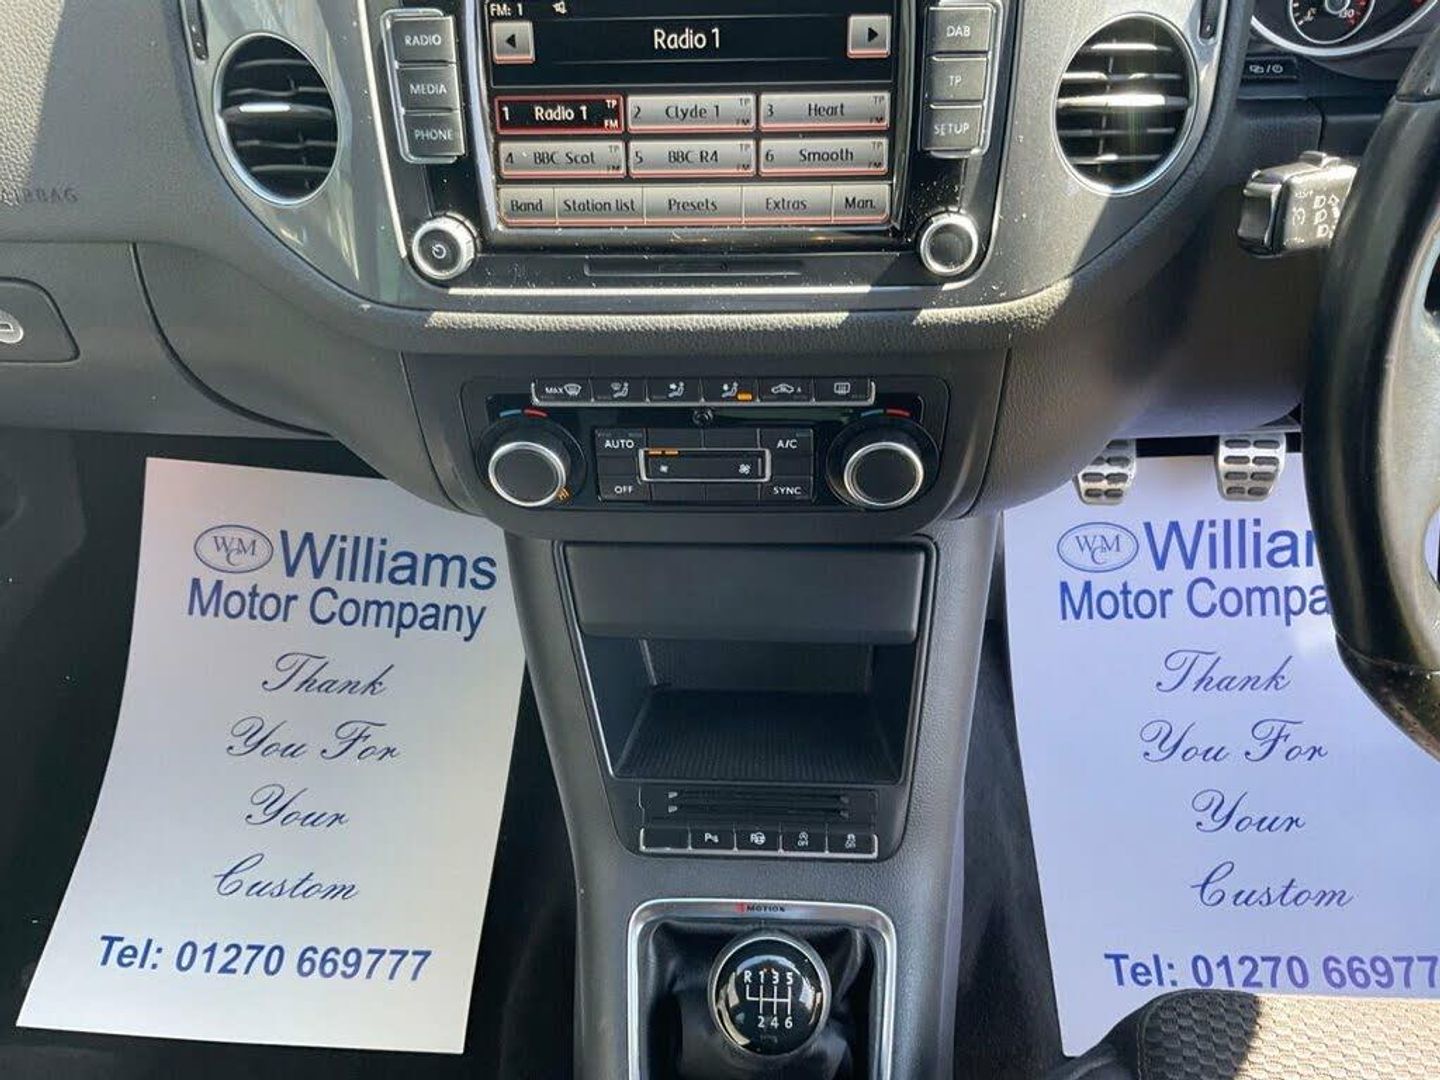 FM: 1
RADIO
MEDIA
PHONE
Radio 1
DAB
TP
SETUP
1 Radio 1 TP FM
2 Clyde 1 TP FM
3 Heart TP FM
4 BBC Scot TP FM
5 BBC R4 TP FM
6 Smooth TP FM
Band Station list Presets Extras Man.
AIRBAG
MAX
AUTO
A/C
OFF
SYNC
WMC Williams
Motor Company
Thank
You For
Your
Custom
Tel: 01270 669777
WMC Willia
Motor Compa
Thank
You For
Your
Custom
Tel: 01270 66977
P
OFF
OFF
4MOTION
R 1 3 5
2 4 6